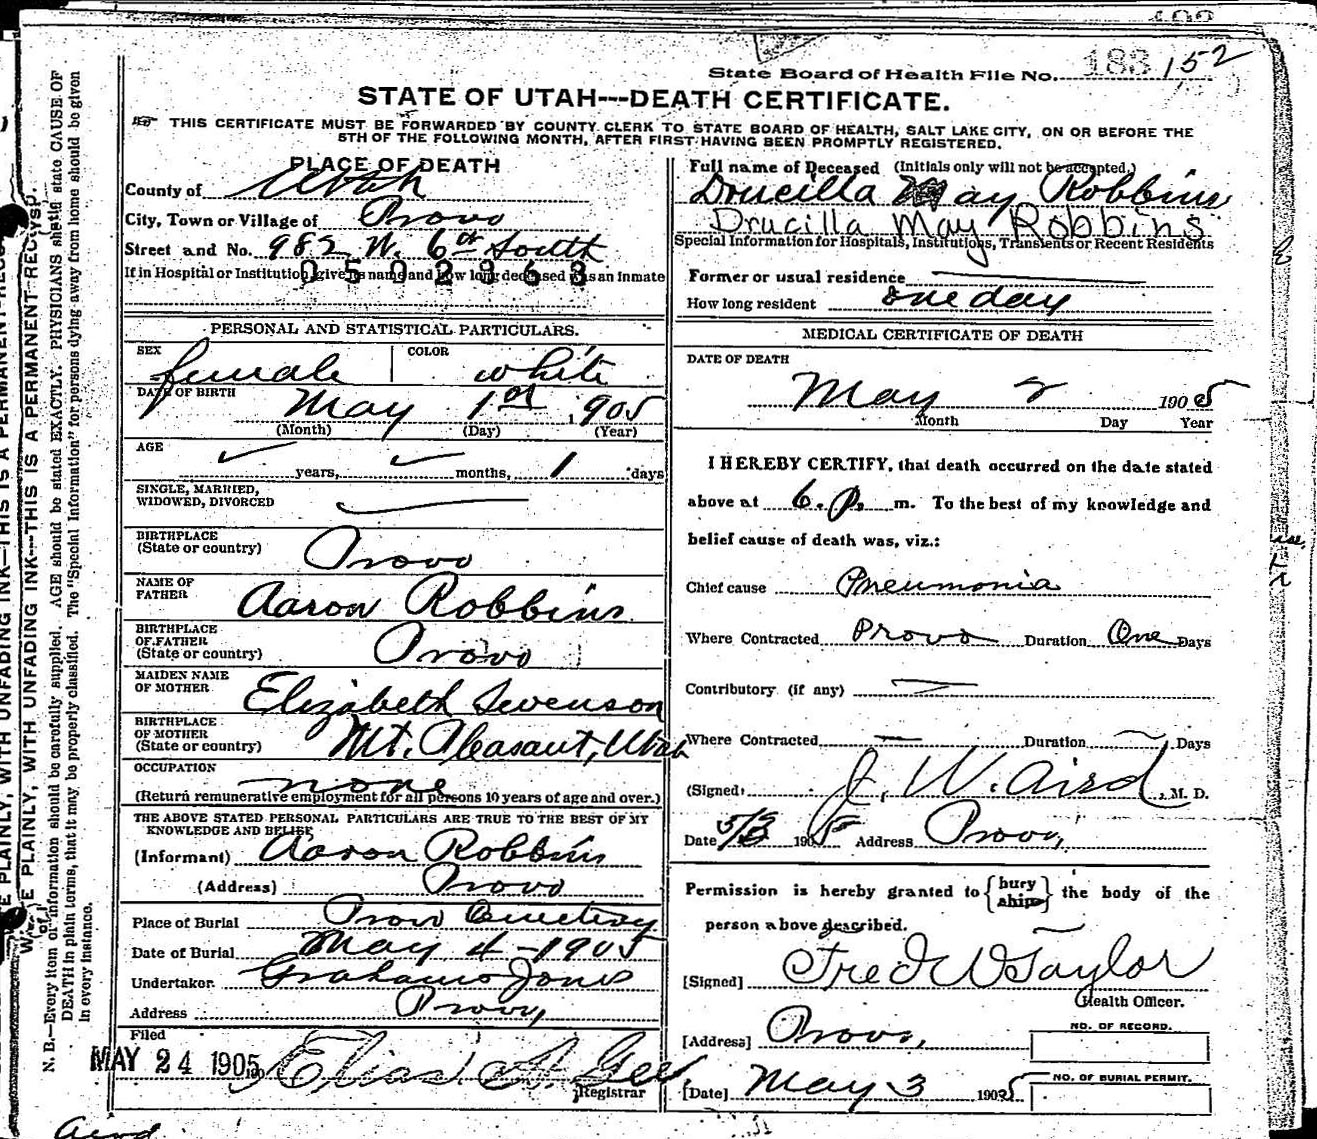 State Board of Health File No. 183 152
STATE OF UTAH---DEATH CERTIFICATE.
THIS CERTIFICATE MUST BE FORWARDED BY COUNTY CLERK TO STATE BOARD OF HEALTH, SALT LAKE CITY, ON OR BEFORE THE
5TH OF THE FOLLOWING MONTH, AFTER FIRST HAVING BEEN PROMPTLY REGISTERED.
PLACE OF DEATH
County of Utah
City, Town or Village of Provo
Street and No. 982 W. 6th South
If in Hospital or Institution, give its name and how long deceased was an inmate
0502363
PERSONAL AND STATISTICAL PARTICULARS.
SEX female COLOR white
DATE OF BIRTH May 1st, 1905
(Month) (Day) (Year)
AGE
years, months, 1 days
SINGLE, MARRIED,
WIDOWED, DIVORCED
BIRTHPLACE
(State or country) Provo
NAME OF
FATHER Aaron Robbins
BIRTHPLACE
OF FATHER
(State or country) Provo
MAIDEN NAME
OF MOTHER Elizabeth Swenson
BIRTHPLACE
OF MOTHER
(State or country) Mt. Pleasant, Utah
OCCUPATION none
(Return remunerative employment for all persons 10 years of age and over.)
THE ABOVE STATED PERSONAL PARTICULARS ARE TRUE TO THE BEST OF MY
KNOWLEDGE AND BELIEF
(Informant) Aaron Robbins
(Address) Provo
Place of Burial Provo Cemetery
Date of Burial May 4-1905
Undertaker Grahams Jones
Address Provo,
Filed
MAY 24 1905 190 Elias A. Gee
Registrar
Full name of Deceased (Initials only will not be accepted.)
Drucilla May Robbins
Drucilla May Robbins
Special Information for Hospitals, Institutions, Transients or Recent Residents
Former or usual residence
How long resident one day
MEDICAL CERTIFICATE OF DEATH
DATE OF DEATH
May 2 1905
Month Day Year
I HEREBY CERTIFY, that death occurred on the date stated
above at 6. P. m. To the best of my knowledge and
belief cause of death was, viz.:
Chief cause Pneumonia
Where Contracted Provo Duration One Days
Contributory (if any)
Where Contracted Duration Days
(Signed) J. W. Aird, M. D.
Date 5/3 1905 Address Provo,
Permission is hereby granted to {bury ship} the body of the
person above described.
[Signed] Fred W Taylor
Health Officer.
[Address] Provo,
NO. OF RECORD.
[Date] May 3 1905
NO. OF BURIAL PERMIT.
WRITE PLAINLY, WITH UNFADING INK---THIS IS A PERMANENT RECORD.
N. B.—Every item of information should be carefully supplied. AGE should be stated EXACTLY. PHYSICIANS should state CAUSE OF
DEATH in plain terms, that it may be properly classified. The "Special Information" for persons dying away from home should be given
in every instance.
E PLAINLY, WITH UNFADING INK—THIS IS A PERMANENT RECO
Aird